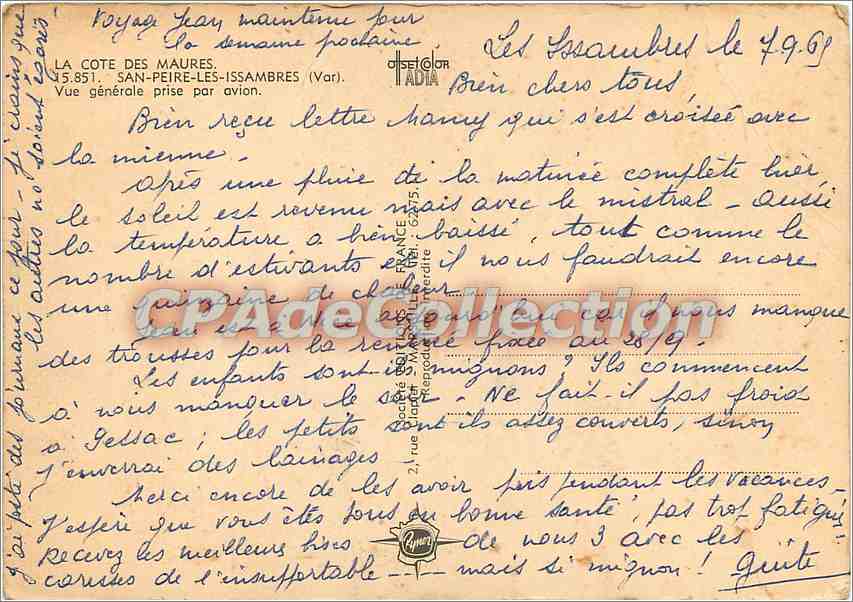 Voyage Jean maintenu pour
la semaine prochaine.
LA COTE DES MAURES.
15.851. SAN-PEIRE-LES-ISSAMBRES (Var).
Vue générale prise par avion.
OFFSETCOLOR
ADIA
Les Issambres le 7.9.69
Bien chers tous,
Bien reçu lettre Mamy qui s'est croisée avec
la mienne -
Après une pluie de la matinée complète hier,
le soleil est revenu mais avec le mistral - Aussi
la température a bien baissé, tout comme le
nombre d'estivants et il nous faudrait encore
une quinzaine de chaleur.
Jean est à Nice aujourd'hui car il nous manque
des trousses pour la rentrée fixée au 28/9.
Les enfants sont-ils mignons ? Ils commencent
à nous manquer le soir - Ne fait-il pas froid
à Gessac ; les petits sont ils assez couverts, sinon
j'enverrai des lainages -
Merci encore de les avoir pris pendant les vacances -
J'espère que vous êtes tous en bonne santé, pas trop fatigués
Recevez les meilleures bises de nous 3 avec les
caresses de l'insupportable - - - mais si mignon ! Guite
J'ai posté des journaux ce jour - Je crains que
les autres ne soient égarés -
Société EDITIONS DE FRANCE
2, rue Clapier - MARSEILLE - Tél. 62-75.
Reproduction interdite
Rymor
CPAdeCollection